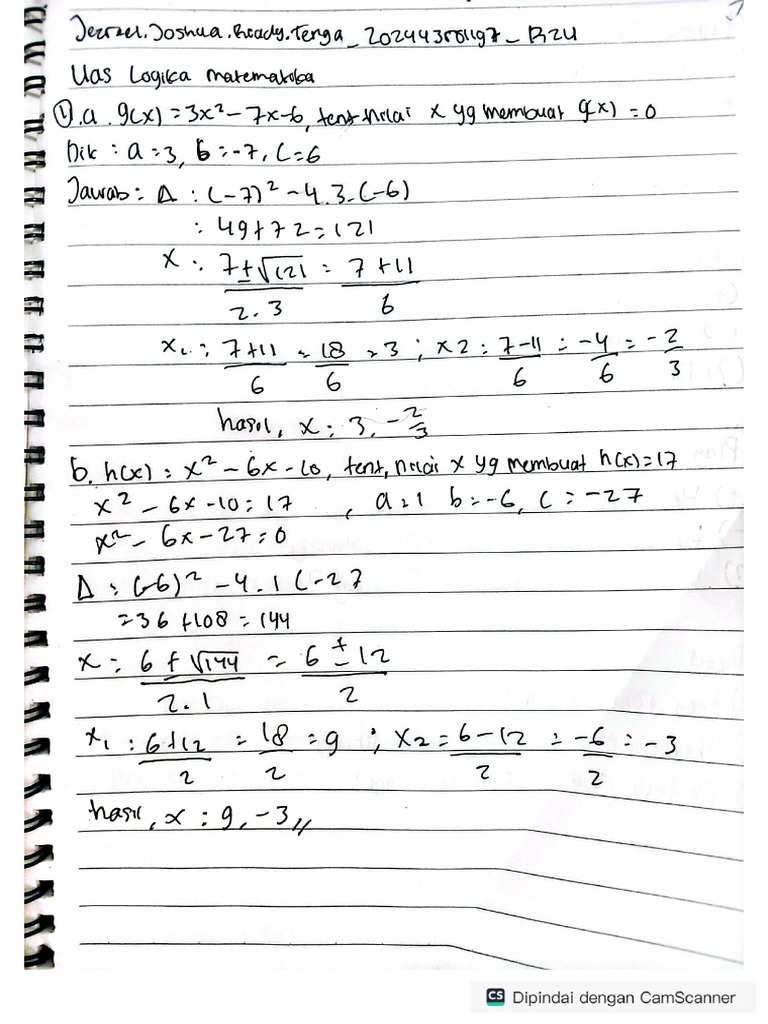 Jezrael.Joshua.Ready.Tenga_202443501197_R2U
Uas Logika matematika
1).a. g(x) = 3x² - 7x - 6, tent. nilai x yg membuat g(x) = 0
Dik : a = 3, b = -7, c = 6
Jawab : Δ : (-7)² - 4.3.(-6)
: 49 + 72 = 121
x : 7 ± √121 / 2.3 = 7 + 11 / 6
x₁ : 7+11 / 6 = 18 / 6 = 3 ; x2 : 7-11 / 6 = -4 / 6 = -2 / 3
hasil, x : 3, -2/3
b. h(x) : x² - 6x - 10, tent, nilai x yg membuat h(x) = 17
x² - 6x - 10 = 17 , a = 1 b = -6, c = -27
x² - 6x - 27 = 0
Δ : (-6)² - 4.1 (-27
= 36 + 108 = 144
x : 6 ± √144 / 2.1 = 6 ± 12 / 2
x₁ : 6+12 / 2 = 18 / 2 = 9 ; x₂ = 6-12 / 2 = -6 / 2 = -3
hasil, x : 9, -3 //
CS Dipindai dengan CamScanner